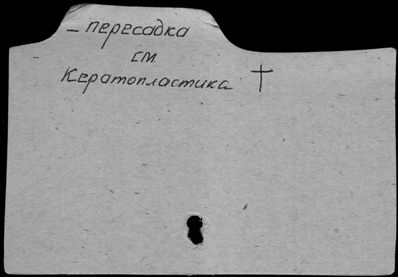 – пересадка
см
Кератопластика †